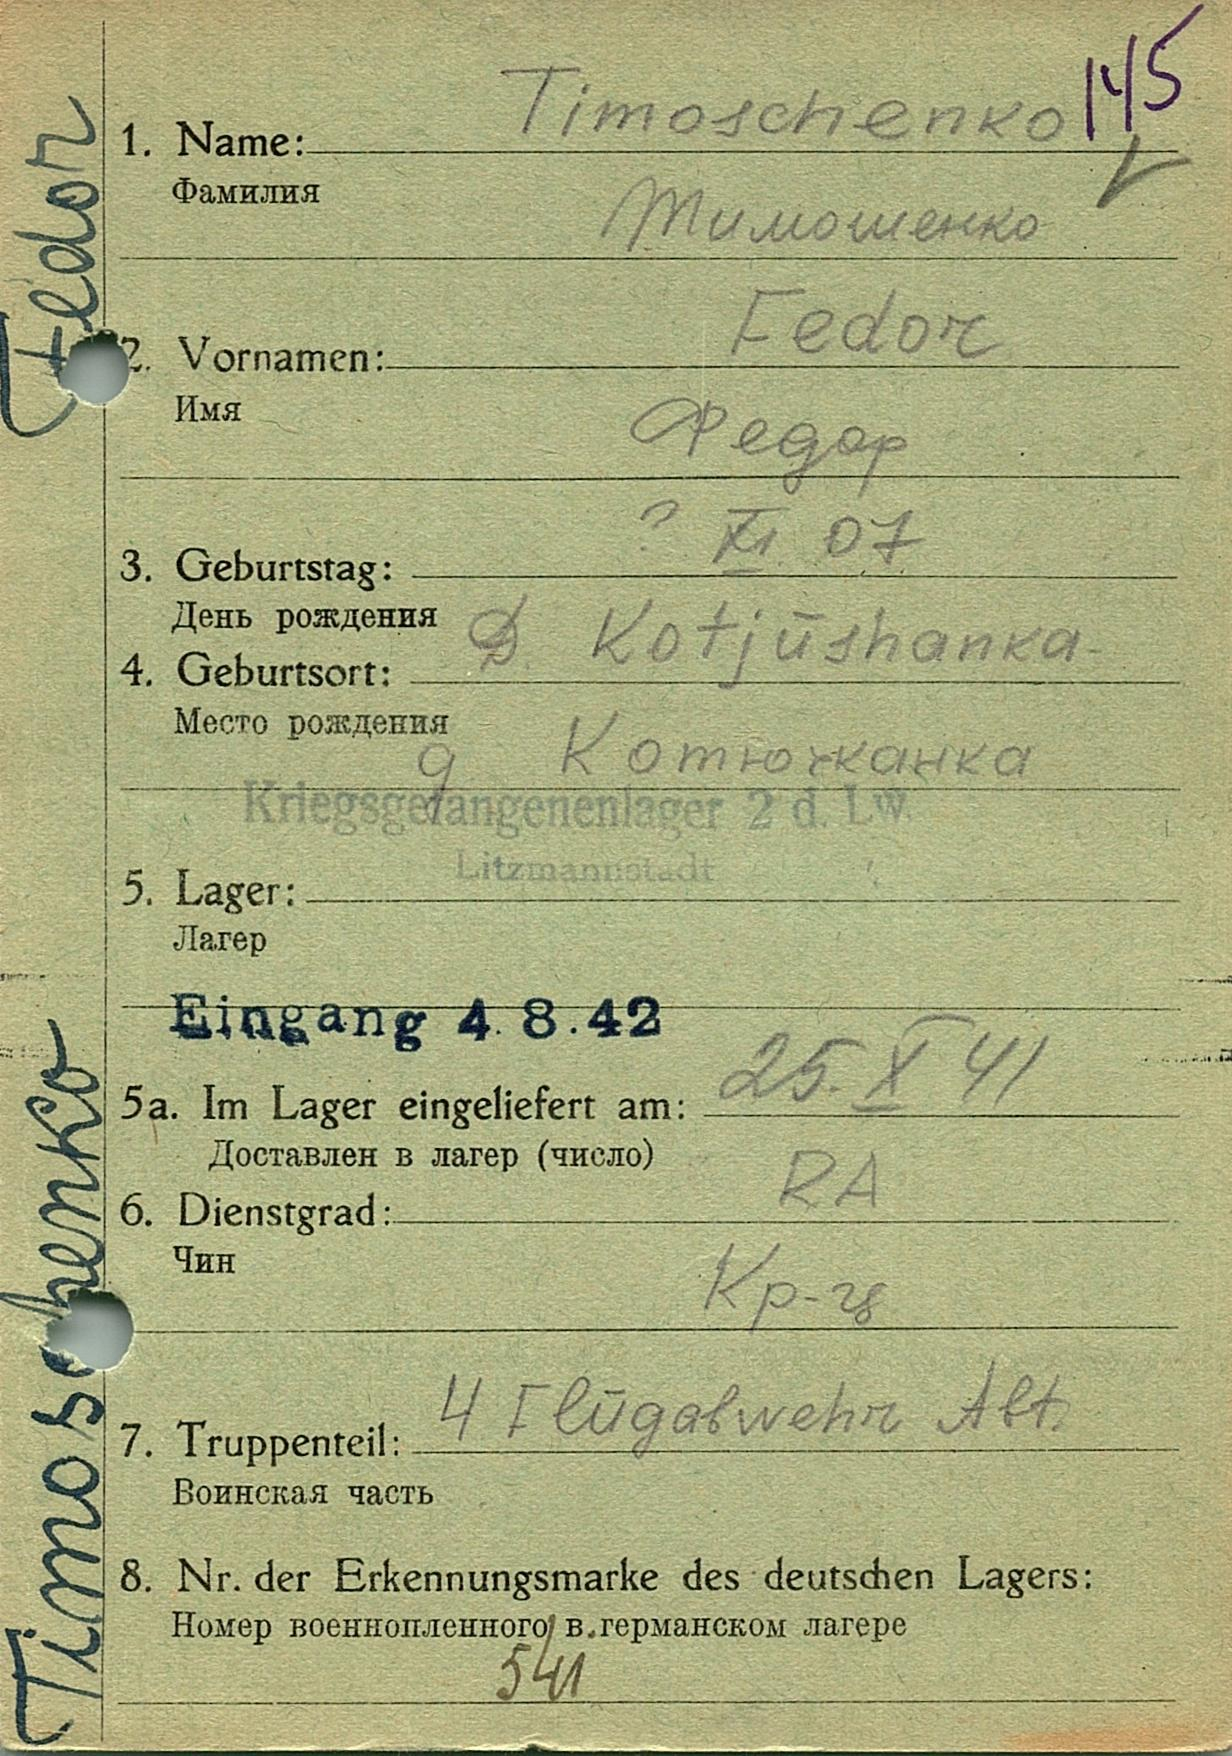 145
1. Name: Timoschenko
Фамилия
Тимошенко
2. Vornamen: Fedor
Имя
Федор
3. Geburtstag: ? XI 07
День рождения
4. Geburtsort: D. Kotjushanka
Место рождения
д Котюжканка
Kriegsgefangenenlager 2 d. Lw.
Litzmannstadt
5. Lager:
Лагер
Eingang 4.8.42
5a. Im Lager eingeliefert am: 25. X 41
Доставлен в лагер (число)
6. Dienstgrad: RA
Чин
Кр-ц
7. Truppenteil: 4 Flugabwehr Abt.
Воинская часть
8. Nr. der Erkennungsmarke des deutschen Lagers:
Номер военнопленного в германском лагере
541
Timoschenko Fedor